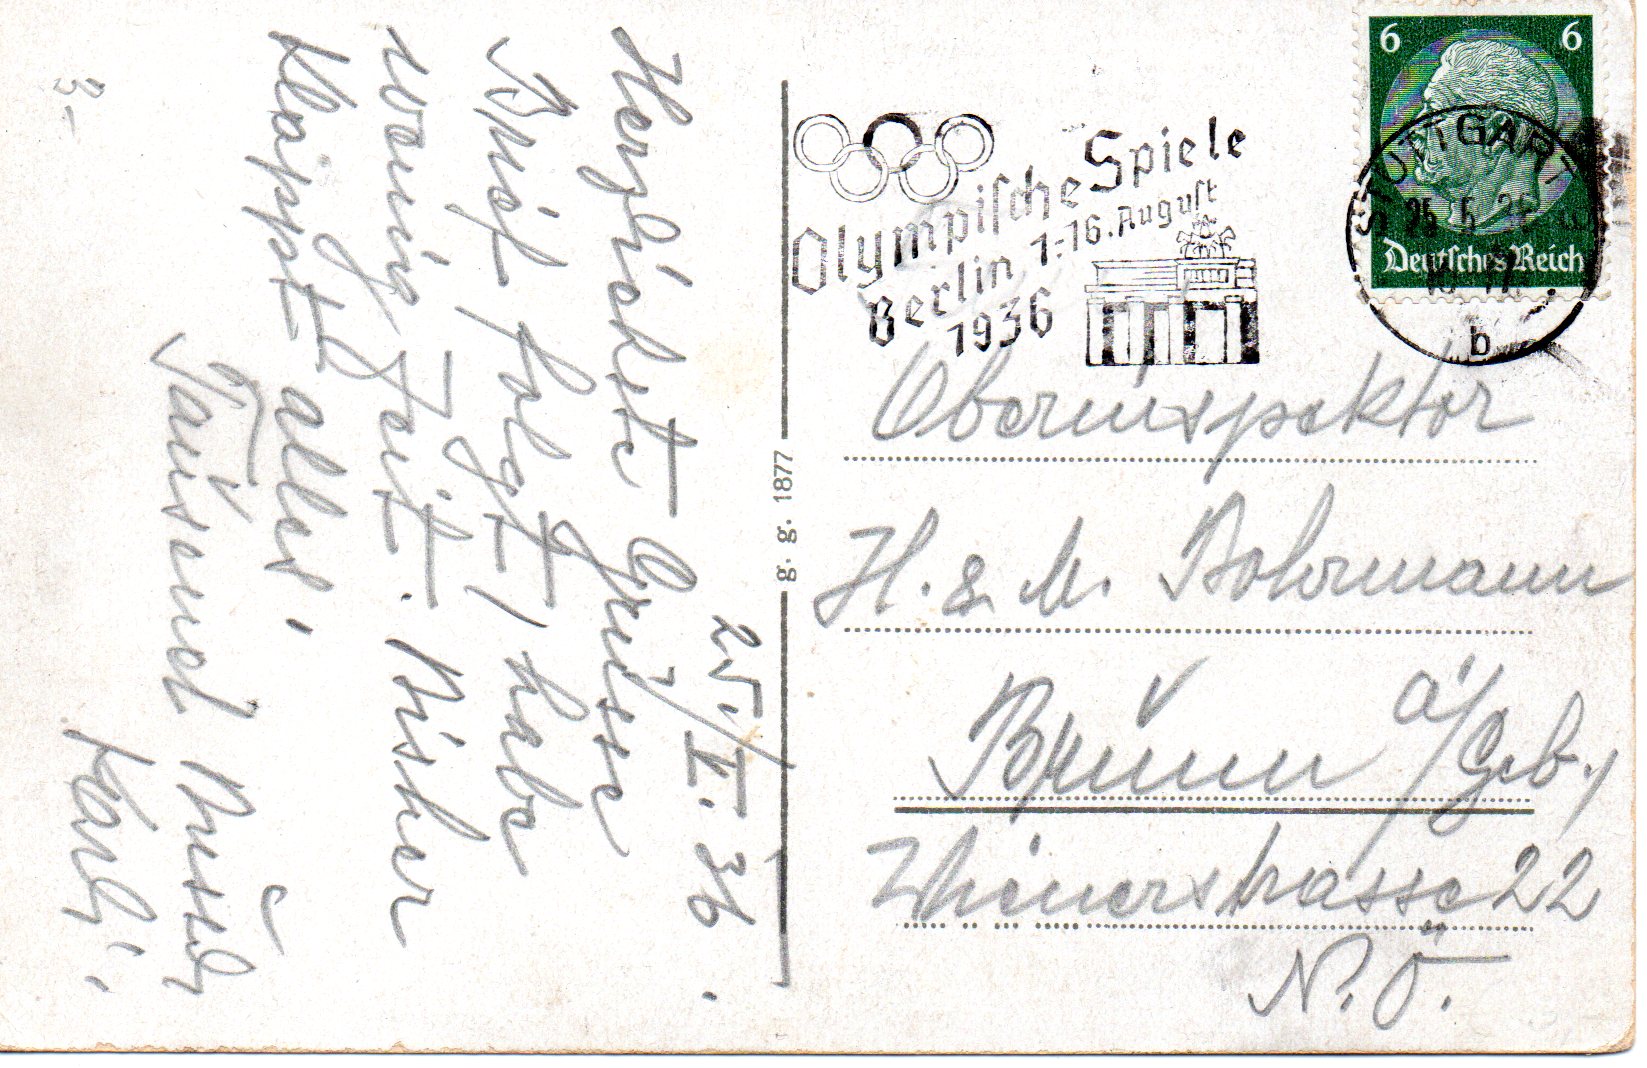 25./V. 36.
Herzlichste Grüsse
Brief folgt, habe
wenig Zeit. Bisher
klappt alles.
Tausend Bussi
Karli.
3.-
g. g. 1877
Olympische Spiele
Berlin 1.-16. August
1936
6 6
Deutsches Reich
STUTTGART
25.5.36
b
Oberinspektor
H. & M. Bohrmann
Brünn a/Geb.,
Wienerstrasse 22
N.Ö.